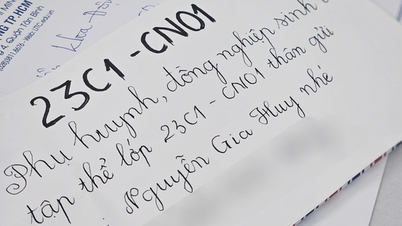 TP HCM
Quận Tân Bình
khoa
23C1-CNO1
Phụ huynh, đồng nghiệp sinh
tập thể lớp 23C1-CNO1 thân gửi
Nguyễn Gia Huy nhé